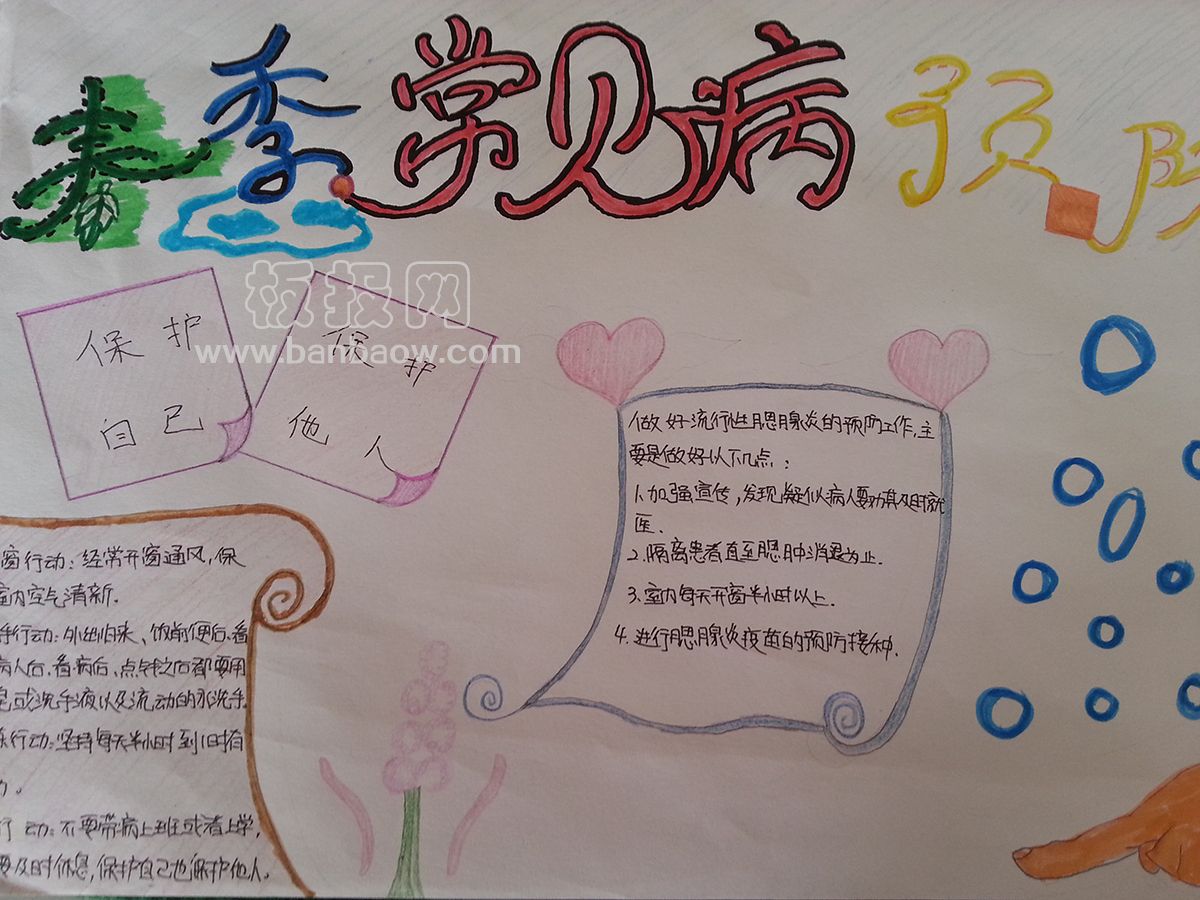 春季常见病预防
板报网
www.banbaow.com
保护
自己
保护
他人
做好流行性腮腺炎的预防工作,主
要是做好以下几点:
1.加强宣传,发现疑似病人要劝其及时就
医.
2.隔离患者直至腮肿消退为止.
3.室内每天开窗半小时以上.
4.进行腮腺炎疫苗的预防接种.
窗行动:经常开窗通风,保
室内空气清新.
手行动:外出归来、饭前便后、看
病人后、看病后、点钱之后都要用
皂或洗手液以及流动的水洗手.
行动:坚持每天半小时到1小时有
力。
行动:不要带病上班或者上学,
要及时休息,保护自己也保护他人.